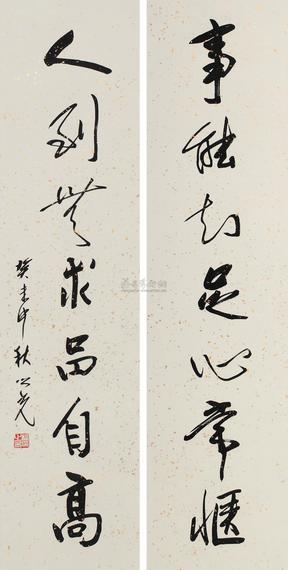 事能知足心常惬
人到无求品自高
癸未中秋